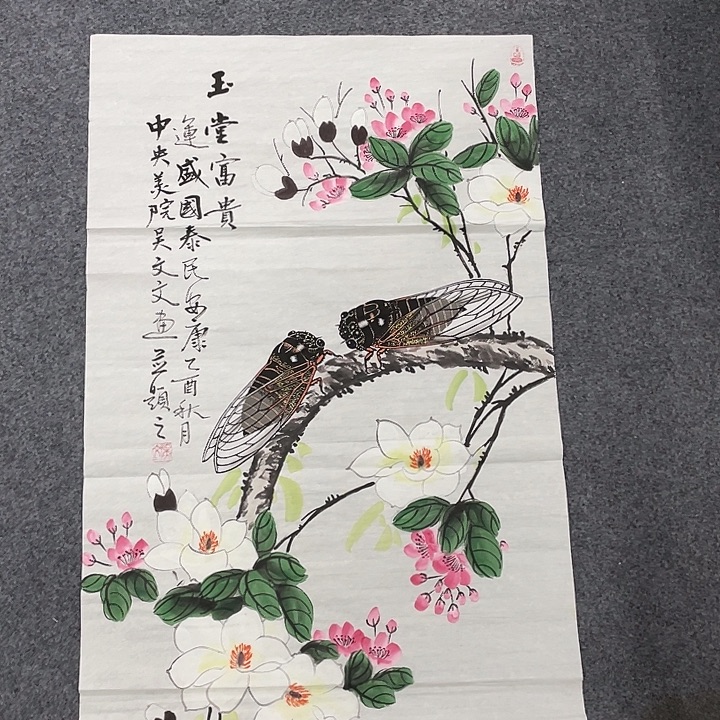 玉堂富貴
運盛國泰民安康乙酉秋月
中央美院吴文文画並題之